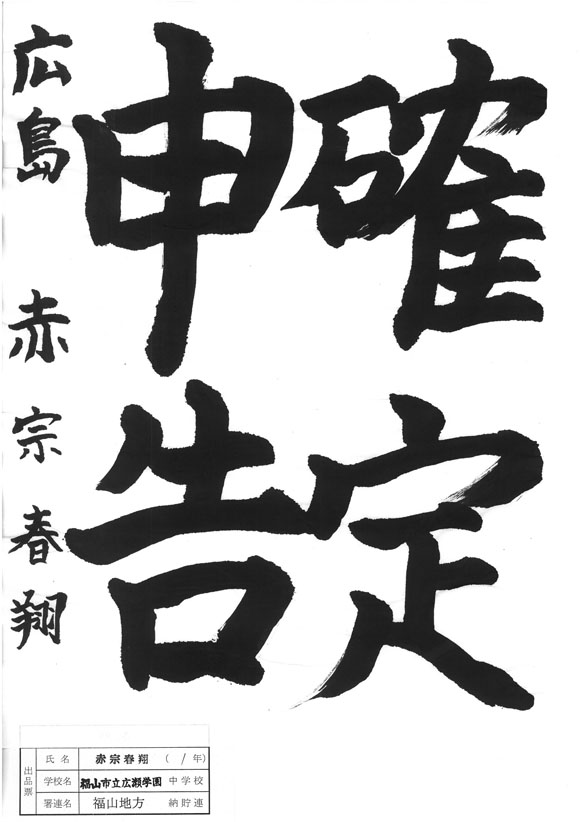 確定
申告
広島 赤宗春翔
出品票
氏名 赤宗春翔 (1年)
学校名 福山市立広瀬学園 中学校
署連名 福山地方 納貯連